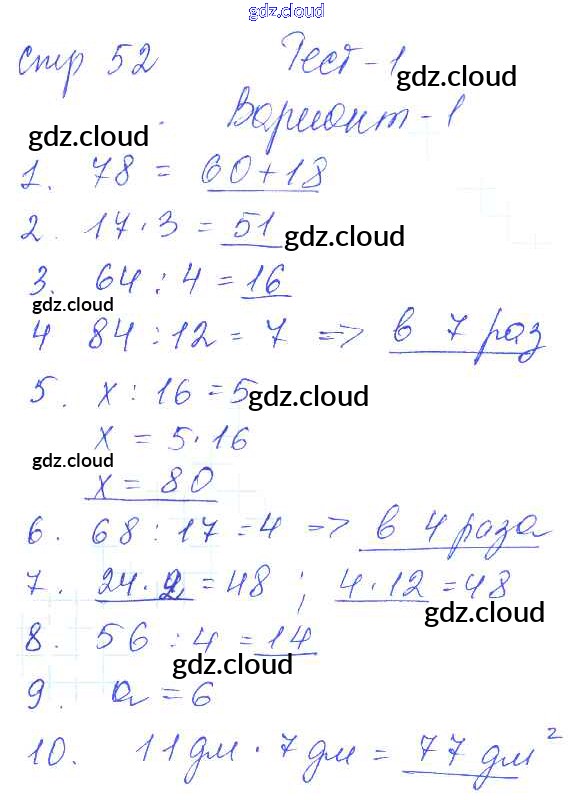 gdz.cloud
gdz.cloud
стр 52 Тест-1
gdz.cloud
Вариант-1
gdz.cloud
1. 78 = 60+18
2. 17·3 = 51
gdz.cloud
3. 64 : 4 = 16
gdz.cloud
4 84 : 12 = 7 => в 7 раз
5. x : 16 = 5
gdz.cloud
x = 5·16
gdz.cloud
x = 80
6. 68 : 17 = 4 => в 4 раза
7. 24·2 = 48 ; 4·12 = 48
gdz.cloud
8. 56 : 4 = 14
gdz.cloud
9. a = 6
10. 11 дм · 7 дм = 77 дм²